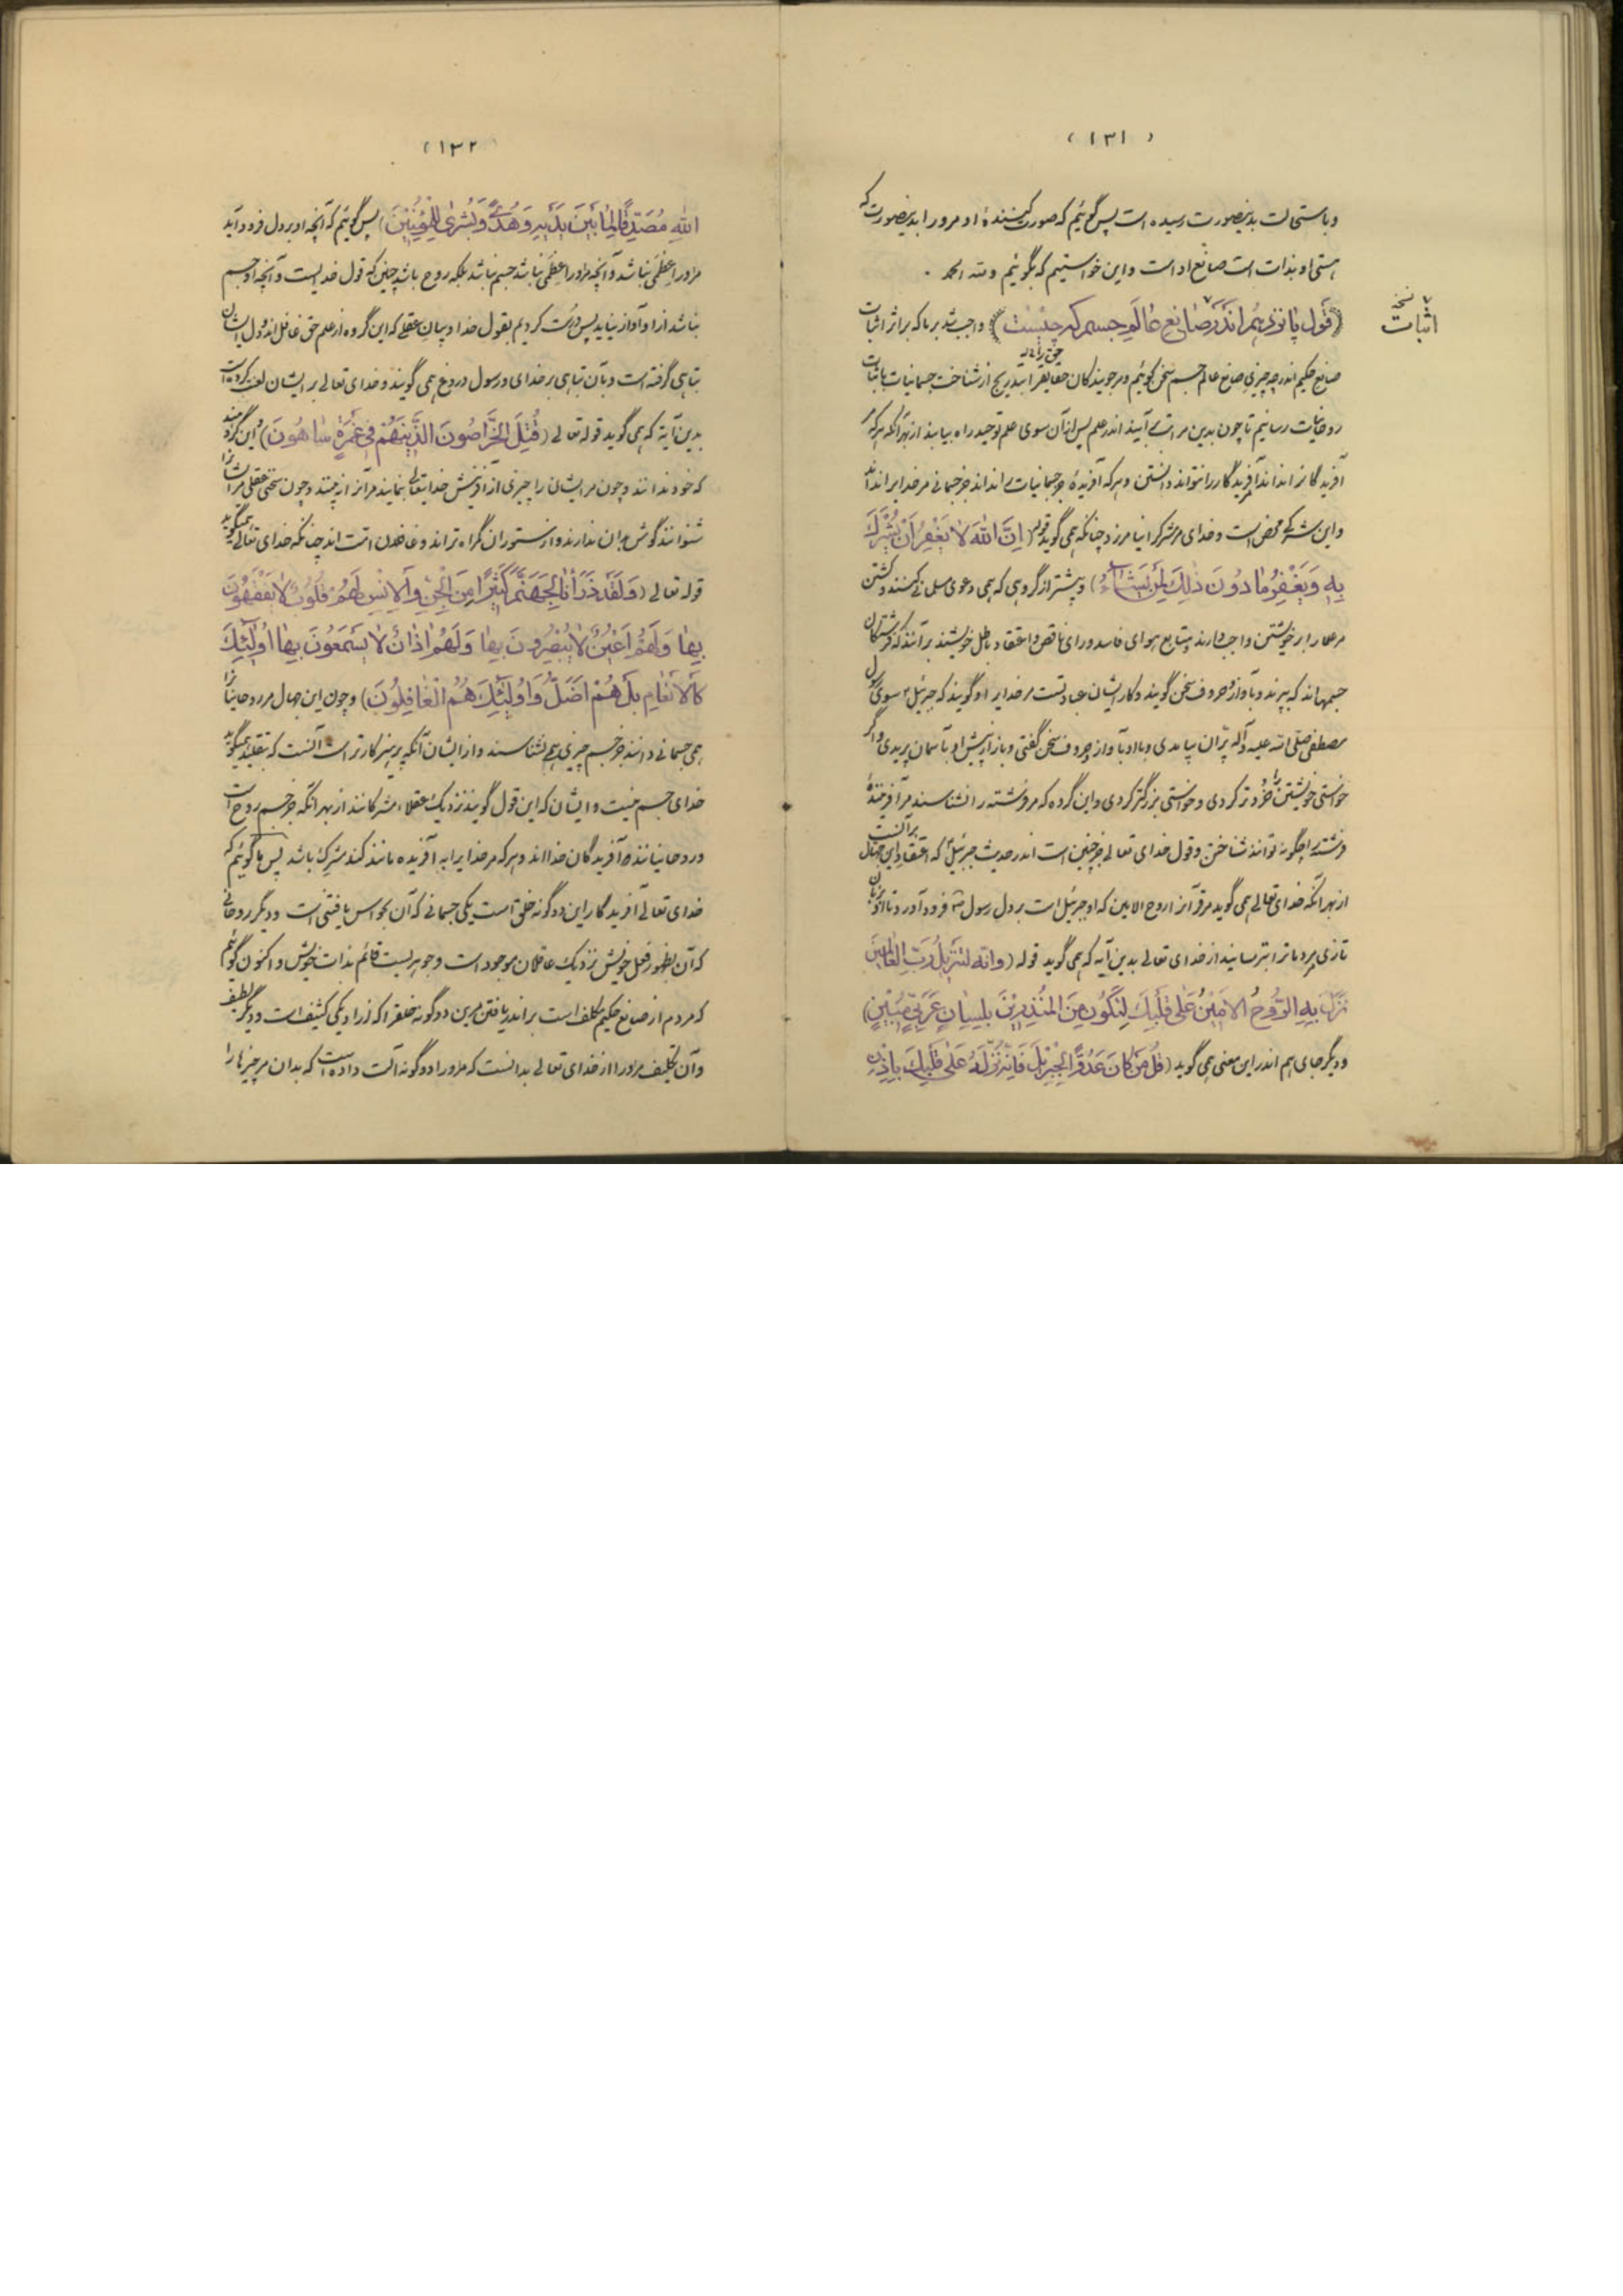 ( ۱۳۱ )
و باستحالت بدینصورت رسیده است پس گوئیم که صورت کنندهٔ او مرورا بدینصورت که
هستی او بذات است صانع اوست و این خواستیم که بگوئیم و لله الحمد .
نسخه
اثبات
(قول پانزدهم اندر صانع عالم جسم که چیست) واجب شد بر ما که بر اثر اثبات
صانع حکیم اندر چه چیزی صانع عالم جسم سخن گوئیم و مر جویندگان حقایق را بتدریج از شناخت جسمانیات باثبات
روحانیات رسانیم تا چون بدین مراتب برآیند اندر علم پس از آن سوی علم توحید راه بیابند از بهر آنکه هر که مر
آفریدگانرا نداند آفریدگار را نتواند دانستن و هر که آفریدهٔ جز جسمانیات نداند جز جسمانی مر خدایرا نداند
و این شرکی محض است و خدای مر مشرکرا نیامرزد چنانکه همی گوید قوله (اِنَّ اللهَ لا یَغْفِرُ اَنْ یُشْرَکَ
بِهِ وَ یَغْفِرُ ما دُونَ ذٰلِکَ لِمَنْ یَشٰاءُ) و بیشتر از گروهی که همی دعوی مسلمانی کنند و کشتن
مر علما را بر خویشتن واجب دارند بمتابع هوای فاسد و رای ناقص و اعتقاد باطل خویشند برآنند که فرشتگان
جسمهااند که بپرند و بآواز و حروف سخن گویند و کار ایشان عبادتست مر خدایرا و گویند که جبرئیل ع سوی رسول
مصطفی صلی الله علیه و آله پرّان بیامدی و با او بآواز و حروف سخن گفتی و باز از پیش او بآسمان پریدی و اگر
خواستی خویشتن را خردتر کردی و خواستی بزرگتر کردی و این گروه که مر فرشته را نشناسند مر آفرینندهٔ
فرشته را چگونه توانند شناختن و قول خدای تعالی جز چنین است اندر حدیث جبرئیل که اعتقاد این جهال بر آنست
از بهر آنکه خدای تعالی همی گوید مر قرآنرا روح الامین که او جبرئیل است بر دل رسول ص فرود آورد تا او بزبان
تازی مردمانرا بترسانید از خدای تعالی بدین آیه که همی گوید قوله (وانه لتنزیل رَبِّ الْعالَمینَ
نَزَلَ بِهِ الرُّوحُ الامینُ عَلی قَلْبِکَ لِتَکُونَ مِنَ الْمُنْذِرینَ بِلِسانٍ عَرَبیٍّ مُبینٍ)
و دیگر جای هم اندر این معنی همی گوید (قُلْ مَنْ کانَ عَدُوًّا لِجِبْرِیلَ فَاِنَّهُ نَزَّلَهُ عَلی قَلْبِکَ بِاِذْنِ
( ۱۳۲ )
اللهِ مُصَدِّقًا لِمٰا بَیْنَ یَدَیْهِ وَ هُدًی وَ بُشْری لِلْمُؤْمِنینَ) پس گوئیم که آنچه او بر دل فرود آید
مر او را عِظَمی نباشد و آنچه مر او را عِظَمی نباشد جسم نباشد بلکه روح باشد چنین که قول خدایست و آنچه او جسم
نباشد ازاو آواز نیاید پس درست کردیم بقول خدا و بیان عقلی که این گروه از علم حق غافل اند و دل ایشان
تباهی گرفته است و بآن تباهی بر خدای و رسول دروغ همی گویند و خدای تعالی بر ایشان لعنت کرده است
بدین آیه که همی گوید قوله تعالی (قُتِلَ الخَرّاصُونَ الَّذینَهُمْ فی غَمْرَةٍ ساهُونَ) و این گروهند
که خود ندانند و چون مر ایشان را چیزی از آفرینش خدایتعالی بنمایند مر آنرا نه بینند و چون سخنی عقلی مر ایشانرا
شنوانند گوش بدان ندارند و از ستوران گمراه تر اند و غافلان امت اند چنانکه خدای تعالی همیگوید
قوله تعالی (وَ لَقَدْ ذَرَأْنا لِجَهَنَّمَ کَثیرًا مِنَ الْجِنِّ وَ الاِنْسِ لَهُمْ قُلُوبٌ لا یَفْقَهُونَ
بِها وَ لَهُمْ اَعْیُنٌ لا یُبْصِرُونَ بِها وَ لَهُمْ اٰذانٌ لا یَسْمَعُونَ بِها اُولٰئِکَ
کَالاَنْعامِ بَلْ هُمْ اَضَلُّ وَ اُولٰئِکَ هُمُ الْغافِلُونَ) و چون این جهال مر روحانیانرا
همی جسمانی دانند جز جسم چیزی همی نشناسند و از ایشان آنکه پرهیزکارتر است آنست که بتقلید همیگوید
خدای جسم نیست و ایشان که این قول گویند نزدیک عقلاء مشرکانند از بهر آنکه جز جسم روح است
و روحانیانند و آفریدگان خدااند و هر که مر خدایرا به آفریده مانند کند مشرک باشد پس ما گوئیم که
خدای تعالی آفریدگار این دو گونه خلق است یکی جسمانی که آن بحواس یافتنی است و دیگر روحانی
که آن بظهور فعل خویش نزدیک عاقلان موجود است و جوهریست قائم بذات خویش و اکنون گوئیم
که مردم از صانع حکیم مکلف است بر اندر یافتن مرین دو گونه خلق را که زو یکی کثیف است و دیگر لطیف
و آن تکلیف مر او را از خدای تعالی بدانست که مر او را دو گونه آلت داده است که بدان مر چیزها را